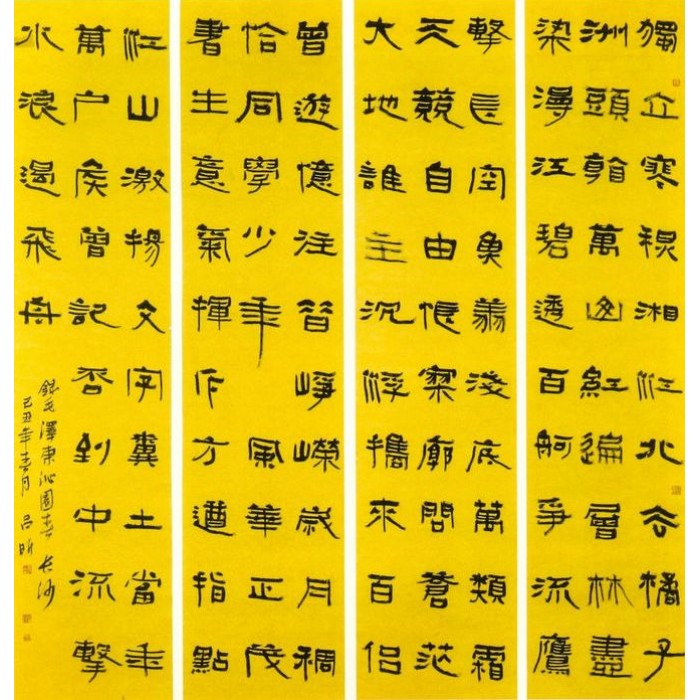 獨立寒秋湘江北去橘子
洲頭看萬山紅遍層林盡
染漫江碧透百舸爭流鷹
擊長空魚翔淺底萬類霜
天競自由悵寥廓問蒼茫
大地誰主沉浮攜來百侶
曾遊憶往昔崢嶸歲月稠
恰同學少年風華正茂
書生意氣揮斥方遒指點
江山激揚文字糞土當年
萬户侯曾記否到中流擊
水浪遏飛舟
錄毛澤東沁園春長沙
己丑年春月呂昕